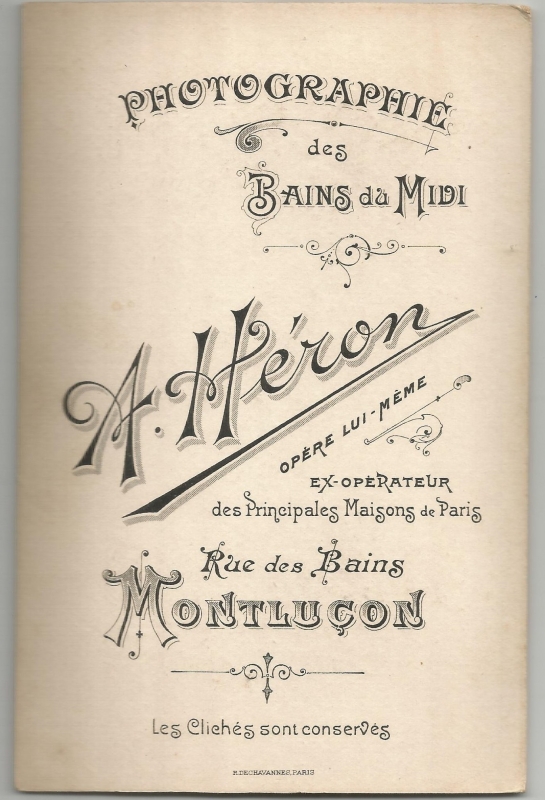 PHOTOGRAPHIE
des
BAINS du MIDI
A. Héron
OPÈRE LUI-MÊME
EX-OPÉRATEUR
des Principales Maisons de Paris
Rue des Bains
MONTLUÇON
Les Clichés sont conservés
R. DECHAVANNES, PARIS